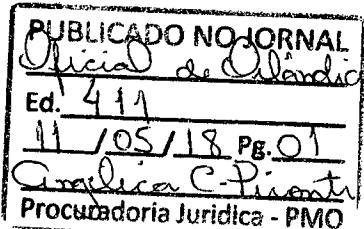 PUBLICADO NO JORNAL
Oficial de Orlândia
Ed. 411
11 / 05 / 18 Pg. 01
Angélica C.
Procuradoria Juridica - PMO